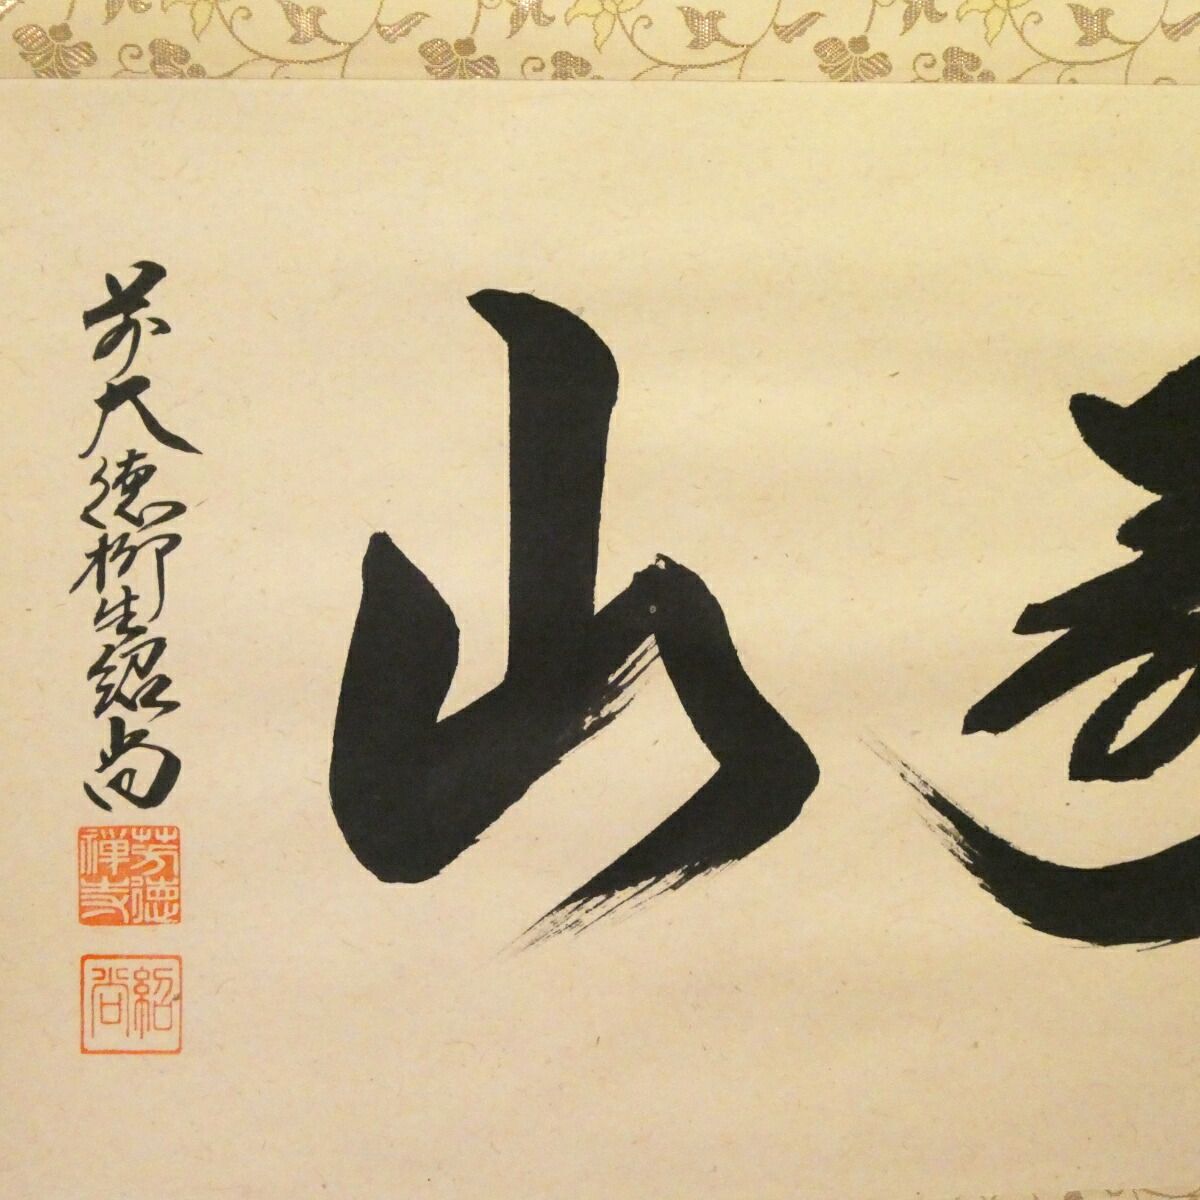 山
前大徳柳生紹尚
芳徳禅寺
紹尚